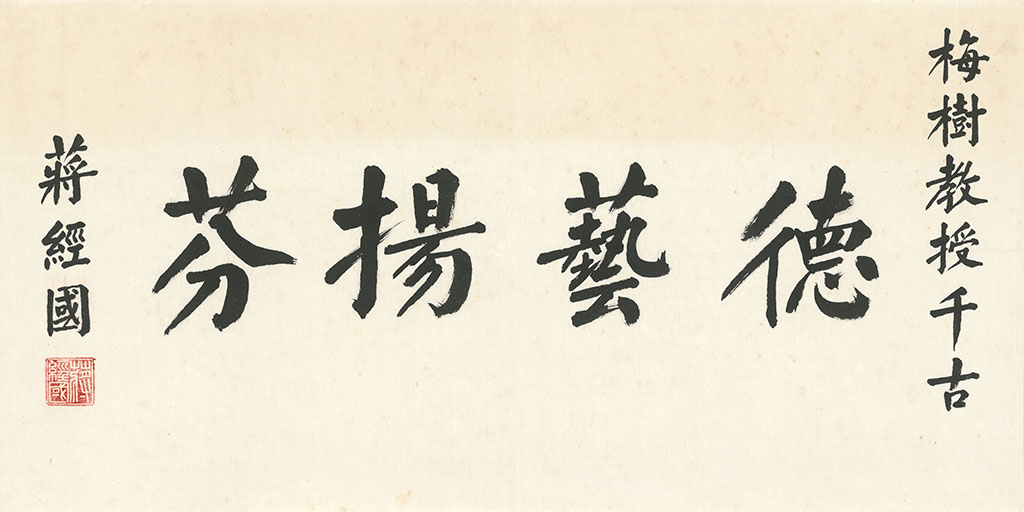 梅樹教授千古
德藝揚芬
蔣經國
蔣經國